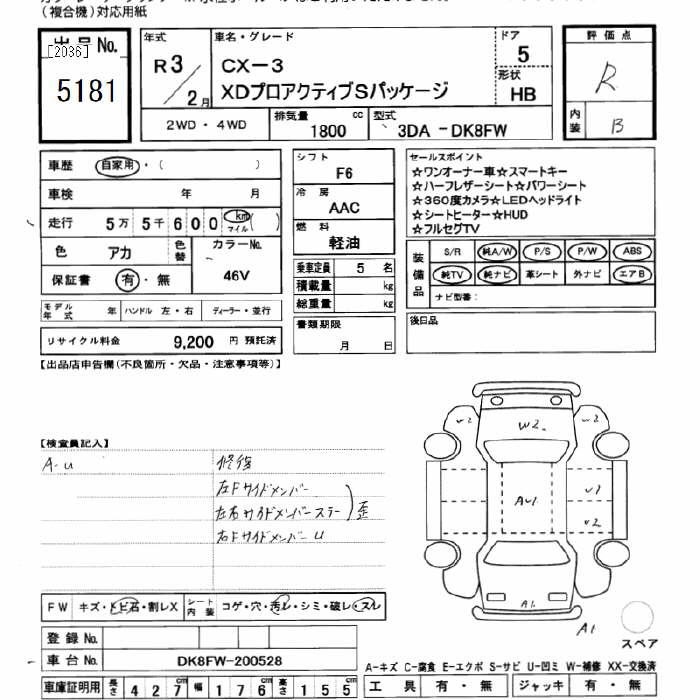 (複合機)対応用紙
出品No.
[2036]
5181
年式
R3/2月
車名・グレード
CX-3
XDプロアクティブSパッケージ
ドア
5
形状
HB
評価点
R
内装
B
2WD・4WD
排気量
1800 cc
型式
3DA-DK8FW
車歴 自家用・( )
車検 年 月
走行 5万5千600 km マイル ( )
色 アカ 色替
カラーNo.
46V
保証書 有・無
モデル年式 年 ハンドル 左・右 ディーラー・並行
リサイクル料金 9,200 円 預託済
シフト
F6
冷房
AAC
燃料
軽油
乗車定員 5 名
積載量 kg
総重量 kg
書類期限
月 日
セールスポイント
☆ワンオーナー車☆スマートキー
☆ハーフレザーシート☆パワーシート
☆360度カメラ☆LEDヘッドライト
☆シートヒーター☆HUD
☆フルセグTV
装備品
S/R 純A/W P/S P/W ABS
純TV 純ナビ 革シート 外ナビ エアB
ナビ型番:
後日品
【出品店申告欄(不良箇所・欠品・注意事項等)】
【検査員記入】
A-u
修復
左Fサイドメンバー
左右サイドメンバーステー 歪
右Fサイドメンバーu
W2
W2
W2
AU1
V1
V2
A1
A1
スペア
FW キズ・トビ石・割レX シート内装 コゲ・穴・汚レ・シミ・破レ・スレ
登録No.
車台No. DK8FW-200528
A-キズ C-腐食 E-エクボ S-サビ U-凹ミ W-補修 XX-交換済
車庫証明用 長さ 427cm 幅 176cm 高さ 155cm
工具 有・無 ジャッキ 有・無